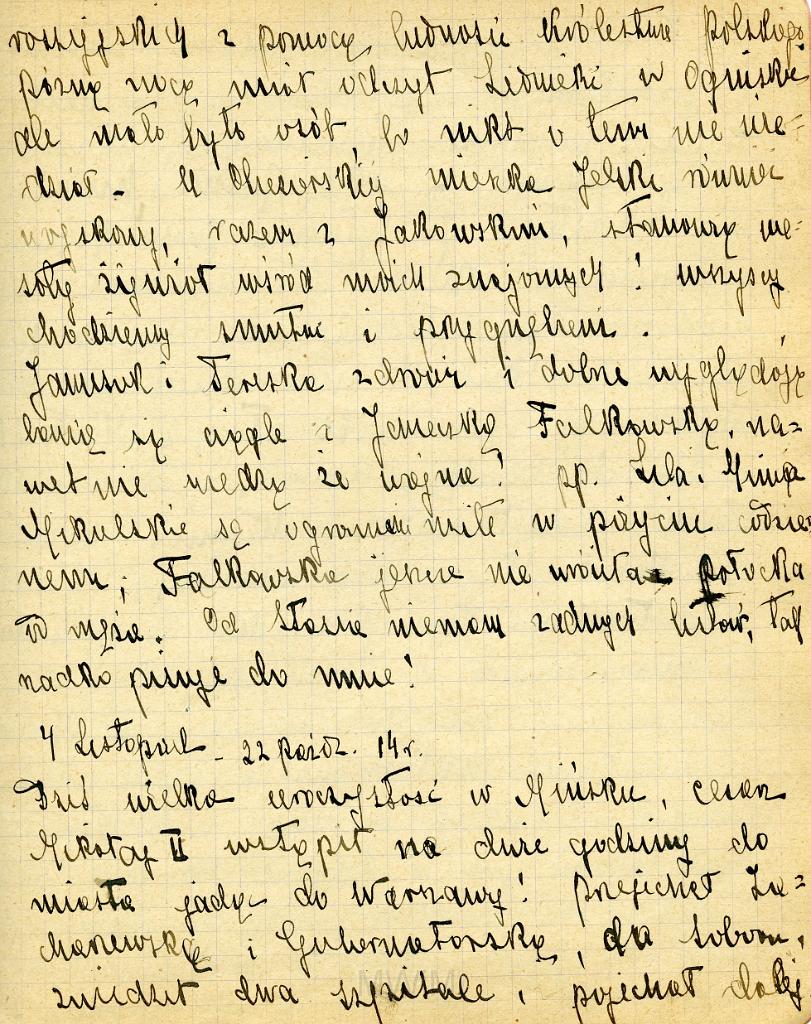 rossyjskich z pomocą ludności Królestwa Polskiego
późną nocą miał odczyt Lednicki w Ognisku
ale mało było osób, bo nikt o tem nie wie=
dział. U Obeziersk­iej mieszka Jelski również
wojskowy, razem z Jakowskim, stanowią we=
soły żywioł wśród moich znajomych! wszyscy
chodziemy smutni i przygnębieni.
Januszek i Tereska zdrowi i dobrze wyglądają
bawią się ciągle z Janeczką Falkowską, na=
wet nie wiedzą że wojna! pp. Lila i Minia
Mikulskie są ogromnie miłe w pożyciu codzie
nem; Falkowska jeszcze nie wróciła z Połocka
od męża. Od Stasia niemam żadnych listów, tak
rzadko pisuje do mnie!
4 Listopad - 22 paźdz. 14 r.
Dziś wielka uroczystość w Mińsku, cesarz
Mikołaj II wstąpił na dwie godziny do
miasta jadąc do Warszawy! przejechał Za=
charzewską i Gubernatorską, do soboru,
zwiedził dwa szpitale i pojechał dalej